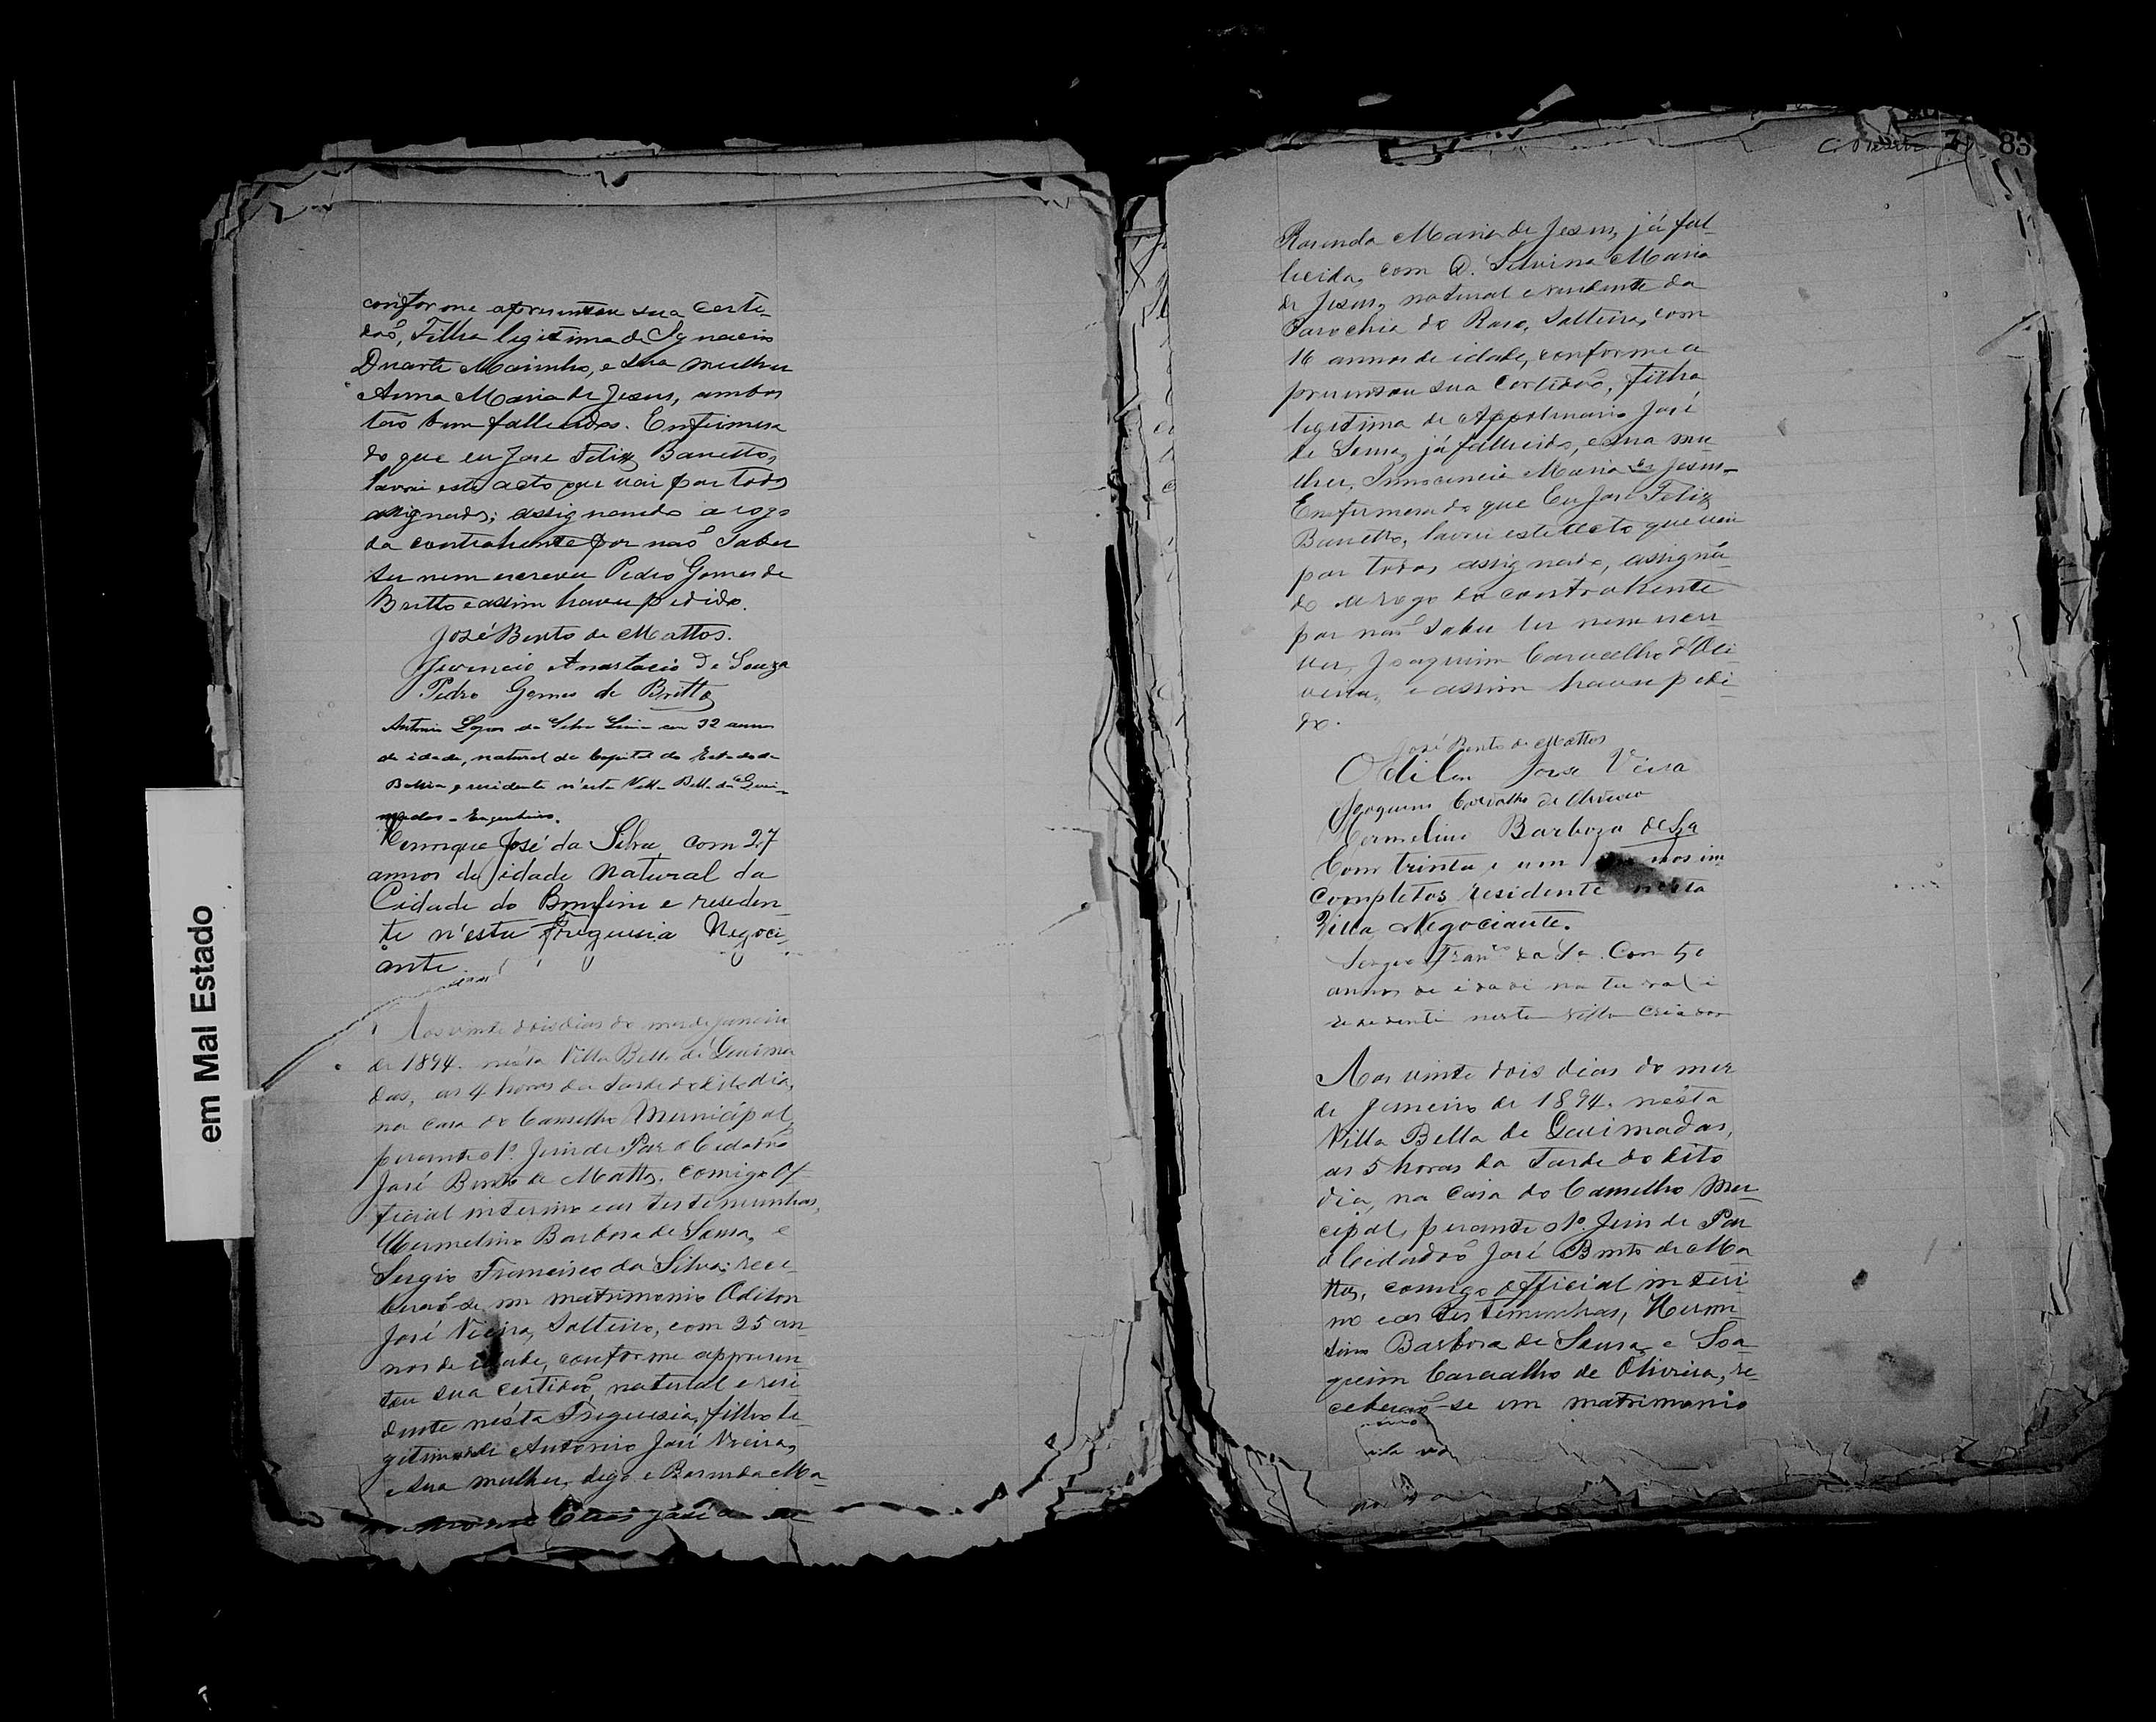 em Mal Estado
conforme apresentou sua certi-
dão, Filha legitima de Ignacio
Duarte Marinho, e sua mulher
Anna Maria de Jesus, ambos
tão bem fallecidos. Enfirmesa
do que eu José Felix Barretto,
lavrei este acto que vai por todos
assignado; assignando a rogo
da contrahente por não saber
ler nem escrever Pedro Gomes de
Britto e assim haver pedido.
José Bento de Mattos.
Juvencio Anastacio de Souza
Pedro Gomes de Britto
Antonio Lopes da Silva Lima com 32 annos
de idade, natural da Capital do Estado da
Bahia e residente n'esta Villa Bella de Quei-
madas - Engenheiro.
Henrique José da Silva com 27
annos de idade natural da
Cidade do Bomfim e residen-
te n'esta Freguesia Negoci-
ante.
Aos vinte dois dias do mes de Janeiro
de 1894. nésta Villa Bella de Queima
das, as 4 horas da tarde do dito dia,
na casa do Conselho Municipal,
perante o 1º. Juiz de Paz o Cidadão
José Bento de Mattos, comigo Of-
ficial interino e as testemunhas,
Hermelino Barbosa de Sousa, e
Sergio Francisco da Silva; rece-
berão-se em matrimonio Odilon
José Vieira, Solteiro, com 25 an-
nos de idade, conforme appresen
tou sua certidão, natural e resi-
dente nésta Freguesia, filho le-
gitimo de Antonio José Vieira,
e sua mulher, digo e Rosenda Ma-
83
Rosenda Maria de Jesus, já fal-
lecida, com D. Silvina Maria
de Jesus, natural e residente da
Parochia do Raso, Solteira, com
16 annos de idade, conforme a
presentou sua Certidão, filha
legitima de Appolinario José
de Sousa, já fallecido, e sua mu-
lher, Innocencia Maria de Jesus-
Enfirmesa do que Eu José Felix
Barretto, lavrei este acto que vai
por todos assignado, assignan-
do a rogo da contrahente
por não saber ler nem escre-
ver, Joaquim Carvalho d'Oli-
veira, e assim haver pedi-
do.
José Bento de Mattos
Odilon José Vieira
Joaquim Carvalho de Oliveira
Hermelino Barboza de Sza
Com trinta e um
completos residente nesta
Villa Negociante.
Sergio Franco da Sa. Com 50
annos de idade natural e
residente nesta Villa Criador
Aos vinte dois dias do mez
de Janeiro de 1894. nésta
Villa Bella de Queimadas,
as 5 horas da Tarde do dito
dia, na casa do Conselho Mu
cipal, perante o 1º. Juiz de Paz
o Cidadão José Bento de Ma
ttos, comigo Official interi-
no e as testemunhas, Herme
lino Barbosa de Sousa e Joa-
quim Carvalho de Oliveira, re-
ceberão-se em matrimonio